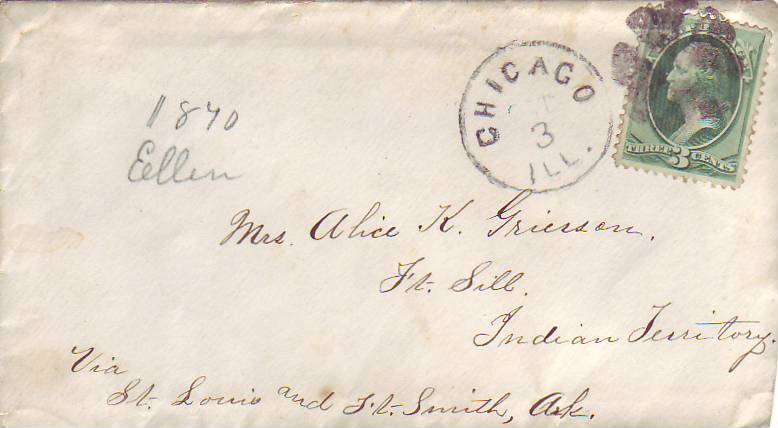 CHICAGO
3
ILL.
THREE 3 CENTS
1870
Ellen
Mrs. Alice K. Grierson.
Ft. Sill.
Indian Territory.
Via
St. Louis and Ft. Smith, Ark.